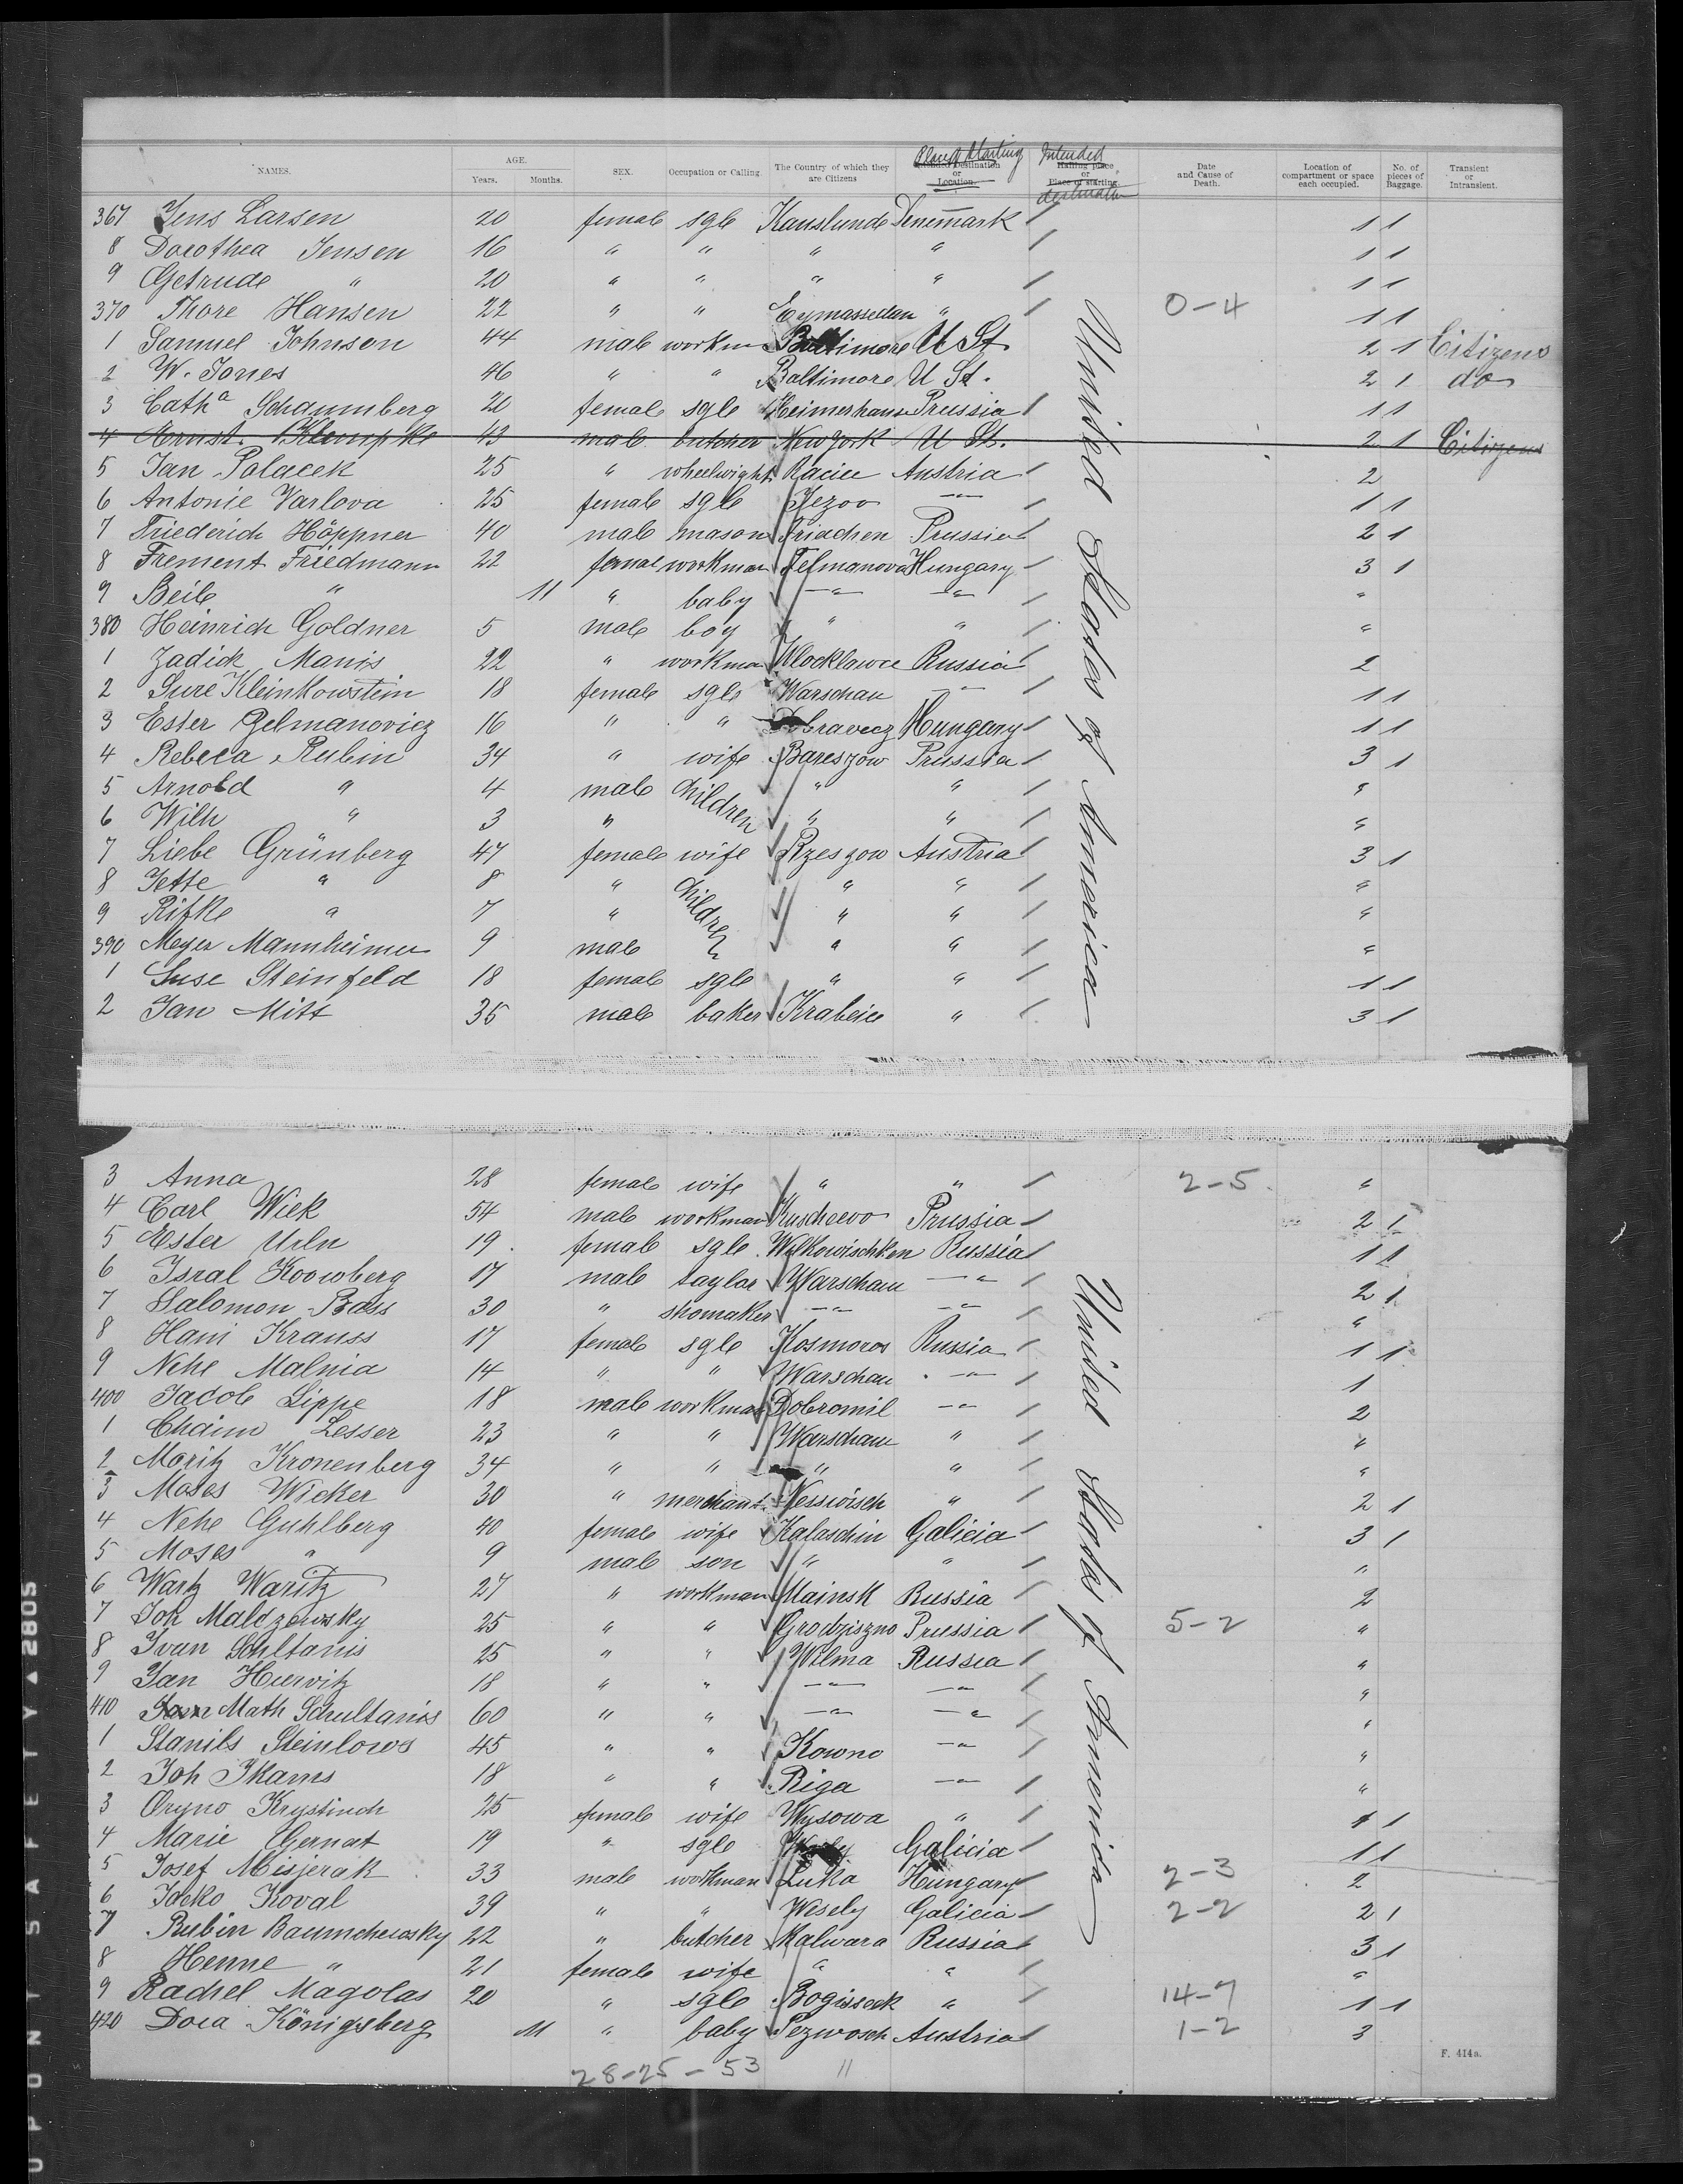 NAMES. AGE. Years. Months. SEX. Occupation or Calling. The Country of which they are Citizens Place of starting Intended Destination or Location. Intended Halting place or Place of starting. destination Date and Cause of Death. Location of compartment or space each occupied. No. of pieces of Baggage. Transient or Intransient.
367 Jens Larsen 20 female sgle Kauslunde Denemark 1 1
8 Dorothea Jensen 16 " " " " 1 1
9 Getrude " 20 " " " " 1 1
370 Thore Hansen 22 " " Eymassedan " 0-4 1 1
1 Samuel Johnson 44 male workm Baltimore U St. 2 1 Citizens
2 W. Jones 46 " " Baltimore U St. 2 1 do
3 Cath a Schaumberg 20 female sgle Heimerhaus Prussia 1 1
4 Ernst. Klempke 43 male butcher New York U St. 2 1 Citizens
5 Jan Polacek 25 " wheelwright Racice Austria 2
6 Antonie Varlova 25 female sgle Jezov —"— 1 1
7 Friederich Höppner 40 male mason Friachen Prussia 2 1
8 Frement Friedmann 22 female workman Telmanova Hungary 3 1
9 Beile " 11 " baby —"— —"— "
380 Heinrich Goldner 5 male boy " " "
1 Zadick Manis 22 " workman Klocklawce Russia 2
2 Sure Kleinkowstein 18 female sgle Warschau —"— 1 1
3 Ester Gelmanovicz 16 " " Hungary 1 1
4 Rebeca Rubin 34 " wife Bareszow Prussia 3 1
5 Arnold " 4 male children " " "
6 Wilh " 3 " " " "
7 Liebe Grünberg 47 female wife Rzeszow Austria 3 1
8 Jette " 8 " children " " "
9 Rifke " 7 " " " "
390 Meyer Mannheimer 9 male " " "
1 Suse Steinfeld 18 female sgle " " 1 1
2 Jan Mitt 35 male baker Krabcice " 3 1
United States of America
3 Anna 28 female wife " " 2-5 "
4 Carl Wiek 54 male workman Kuschewo Prussia 2 1
5 Ester Urln 19 female sgle Wilkowischken Russia 1 1
6 Isral Koowberg 17 male taylor Warschau —"— 2 1
7 Salomon Bass 30 " shomaker —"— —"— "
8 Hani Krauss 17 female sgle Kosmoros Russia 1 1
9 Nehe Malnia 14 " " Warschau —"— 1
400 Jacob Lippe 18 male workman Dobromil —"— 2
1 Chaim Lesser 23 " " Warschau " "
2 Moritz Kronenberg 34 " " " " "
3 Moses Wicker 30 " merchant Nessvisch " 2 1
4 Nehe Guhlberg 40 female wife Kalaschin Galicia 3 1
5 Moses " 9 male son " " "
6 Wartz Waritz 27 " workman Mainsk Russia 2
7 Joh Maldzewsky 25 " " Grodziszno Prussia 5-2 "
8 Ivan Schltanis 25 " " Wilma Russia "
9 Jan Hurvitz 18 " " —"— —"— "
410 Math Schultanis 60 " " —"— —"— "
1 Stanils Steinlows 45 " " Kowno —"— "
2 Joh Ikams 18 " " Riga —"— "
3 Oryno Krystinch 25 female wife Wysowa " 1 1
4 Marie Gernat 19 " sgle Galicia 1 1
5 Josef Misjerak 33 male workman Luka Hungary 2-3 2
6 Idcko Koval 39 " " Wesely Galicia 2-2 2 1
7 Rubin Baumchewsky 22 " butcher Kalwara Russia 3 1
8 Henne " 21 female wife " " "
9 Rachel Magolas 20 " sgle Bogisseck " 14-7 1 1
420 Dora Königsberg 11 " baby Pezwosch Austria 1-2 3
United States of America
28-25-53 11
F. 414a.
UPONT SAFETY ▲ 2805